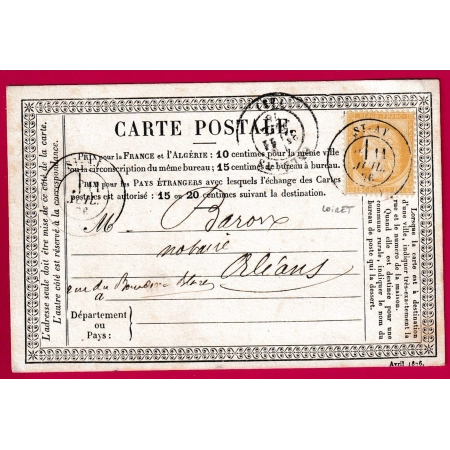 CARTE POSTALE
PRIX pour la FRANCE et l'ALGÉRIE : 10 centimes pour la même ville
ou la circonscription du même bureau ; 15 centimes de bureau à bureau.
PRIX pour les PAYS ÉTRANGERS avec lesquels l'échange des Cartes
postales est autorisé : 15 ou 20 centimes suivant la destination.
M Baroux
notaire
Orléans
LOIRET
à
Département
ou
Pays :
L'adresse seule doit être mise de ce côté de la carte.
L'autre côté est réservé à la correspondance.
Lorsque la carte est à destination
d'une ville, indiquer très-exactement la
rue et le numéro de la maison.
Quand elle est destinée pour une
commune rurale, indiquer le nom du
bureau de poste qui la dessert.
Avril 1876.